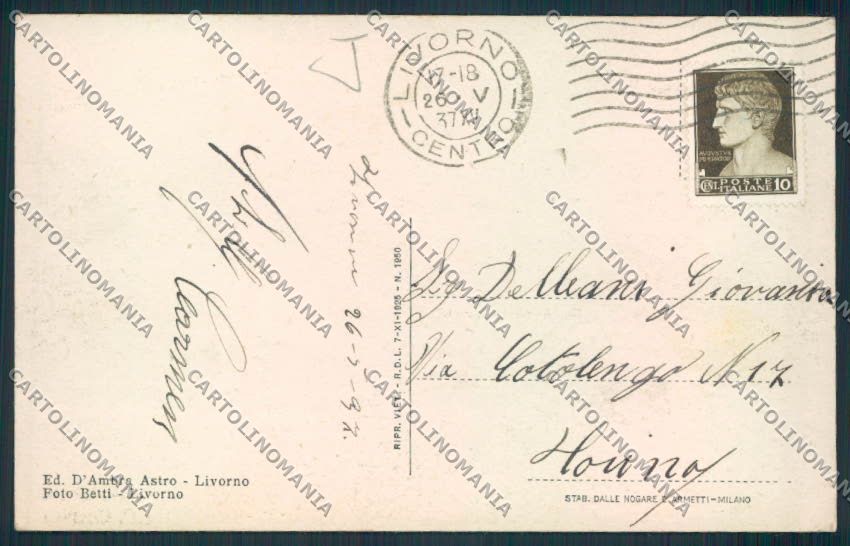 LIVORNO
17-18
26 V
37 XV
CENTRO
AVGVSTVS
POSTE
ITALIANE
CENT. 10
Livorno 26-5-37.
Carmen
RIPR. VIET. - R.D.L. 7-XI-1925 - N. 1950
Sig Delleani Giovanni
Via Cotolengo N 17
Torino
Ed. D'Ambra Astro - Livorno
Foto Betti - Livorno
STAB. DALLE NOGARE E ARMETTI - MILANO
CARTOLINOMANIA